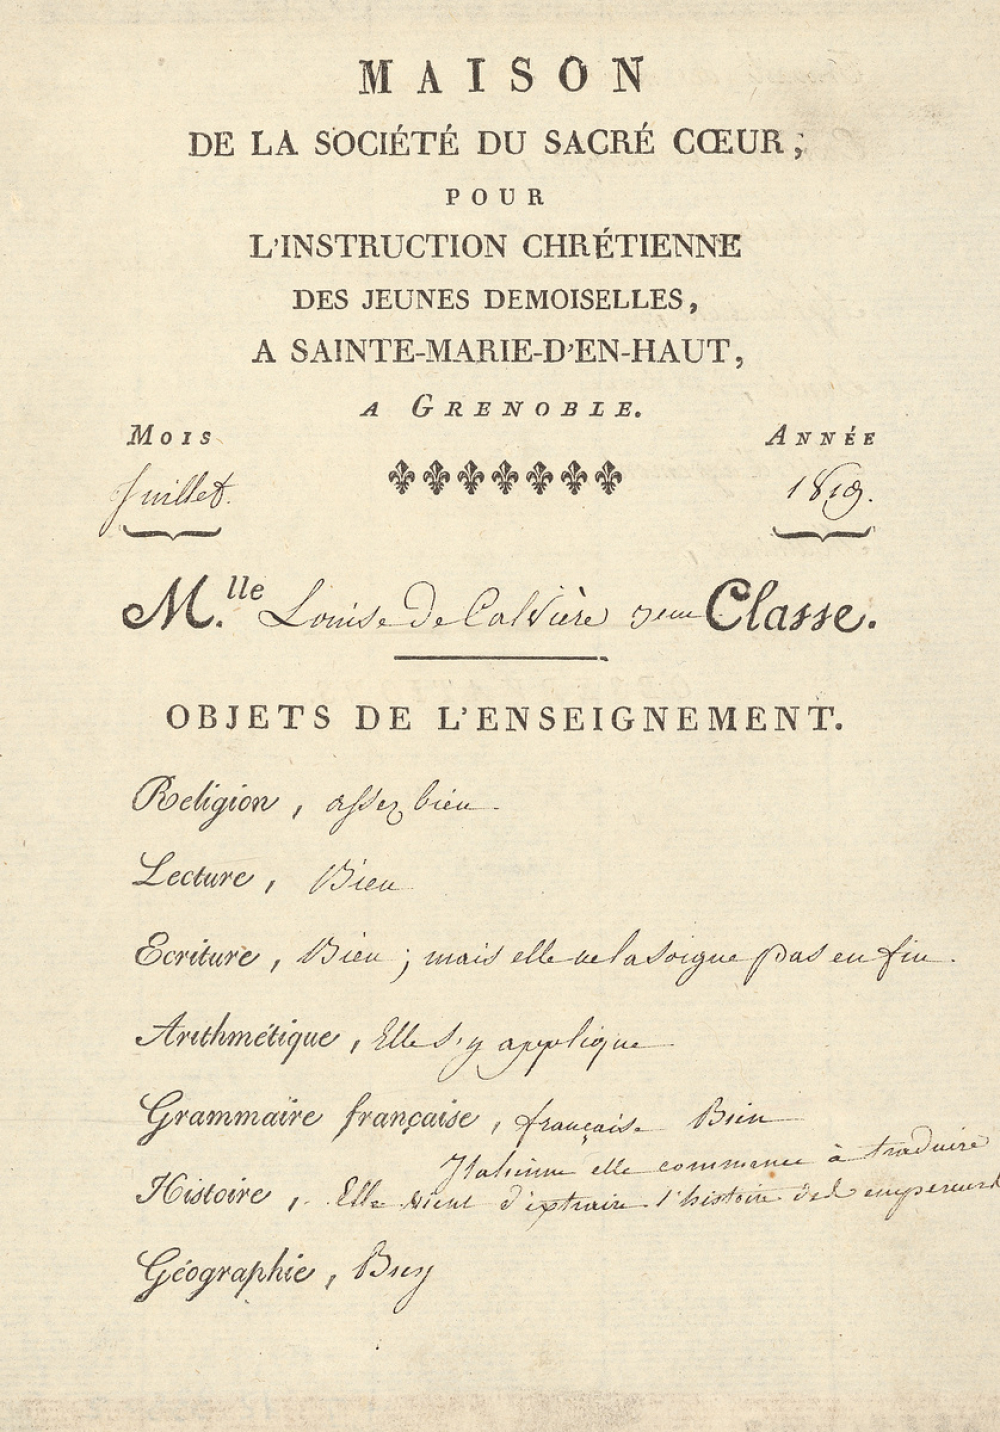 MAISON
DE LA SOCIÉTÉ DU SACRÉ CŒUR;
POUR
L'INSTRUCTION CHRÉTIENNE
DES JEUNES DEMOISELLES,
A SAINTE-MARIE-D'EN-HAUT,
A GRENOBLE.
MOIS ANNÉE
Juillet. 1819.
M.lle Louise De Calvière 3eme Classe.
OBJETS DE L'ENSEIGNEMENT.
Religion, assez bien.
Lecture, Bien
Ecriture, Bien; mais elle ne la soigne pas enfin.
Arithmétique, Elle s'y applique
Grammaire française, française Bien
Italienne elle commence à traduire
Histoire, Elle vient d'extraire l'histoire des empereurs
Géographie,